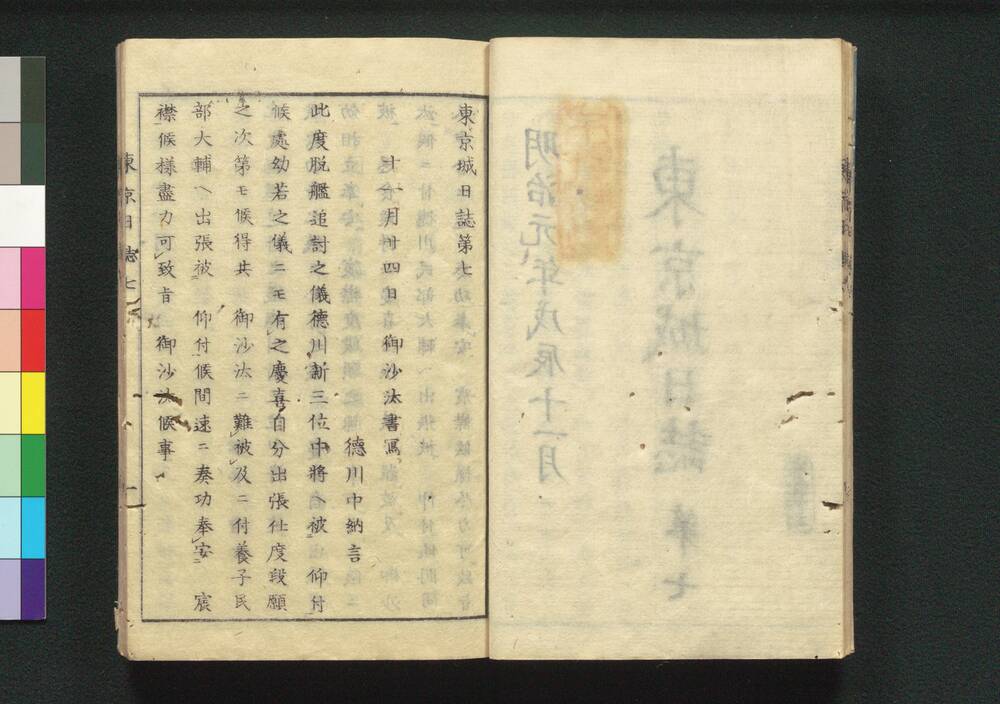 東京城日誌第七
十一月廿四日御沙汰書寫
德川中納言
此度脱艦追討之儀德川新三位中將ヘ被 仰付
候處幼若之儀ニモ有之慶喜自分出張仕度段願
之次第モ候得共 御沙汰ニ難被及ニ付養子民
部大輔ヘ出張被 仰付候間速ニ奏功奉安 宸
襟候樣盡力可致旨 御沙汰候事
東京日誌七
一
明治元年戊辰十一月
東京城日誌 第七